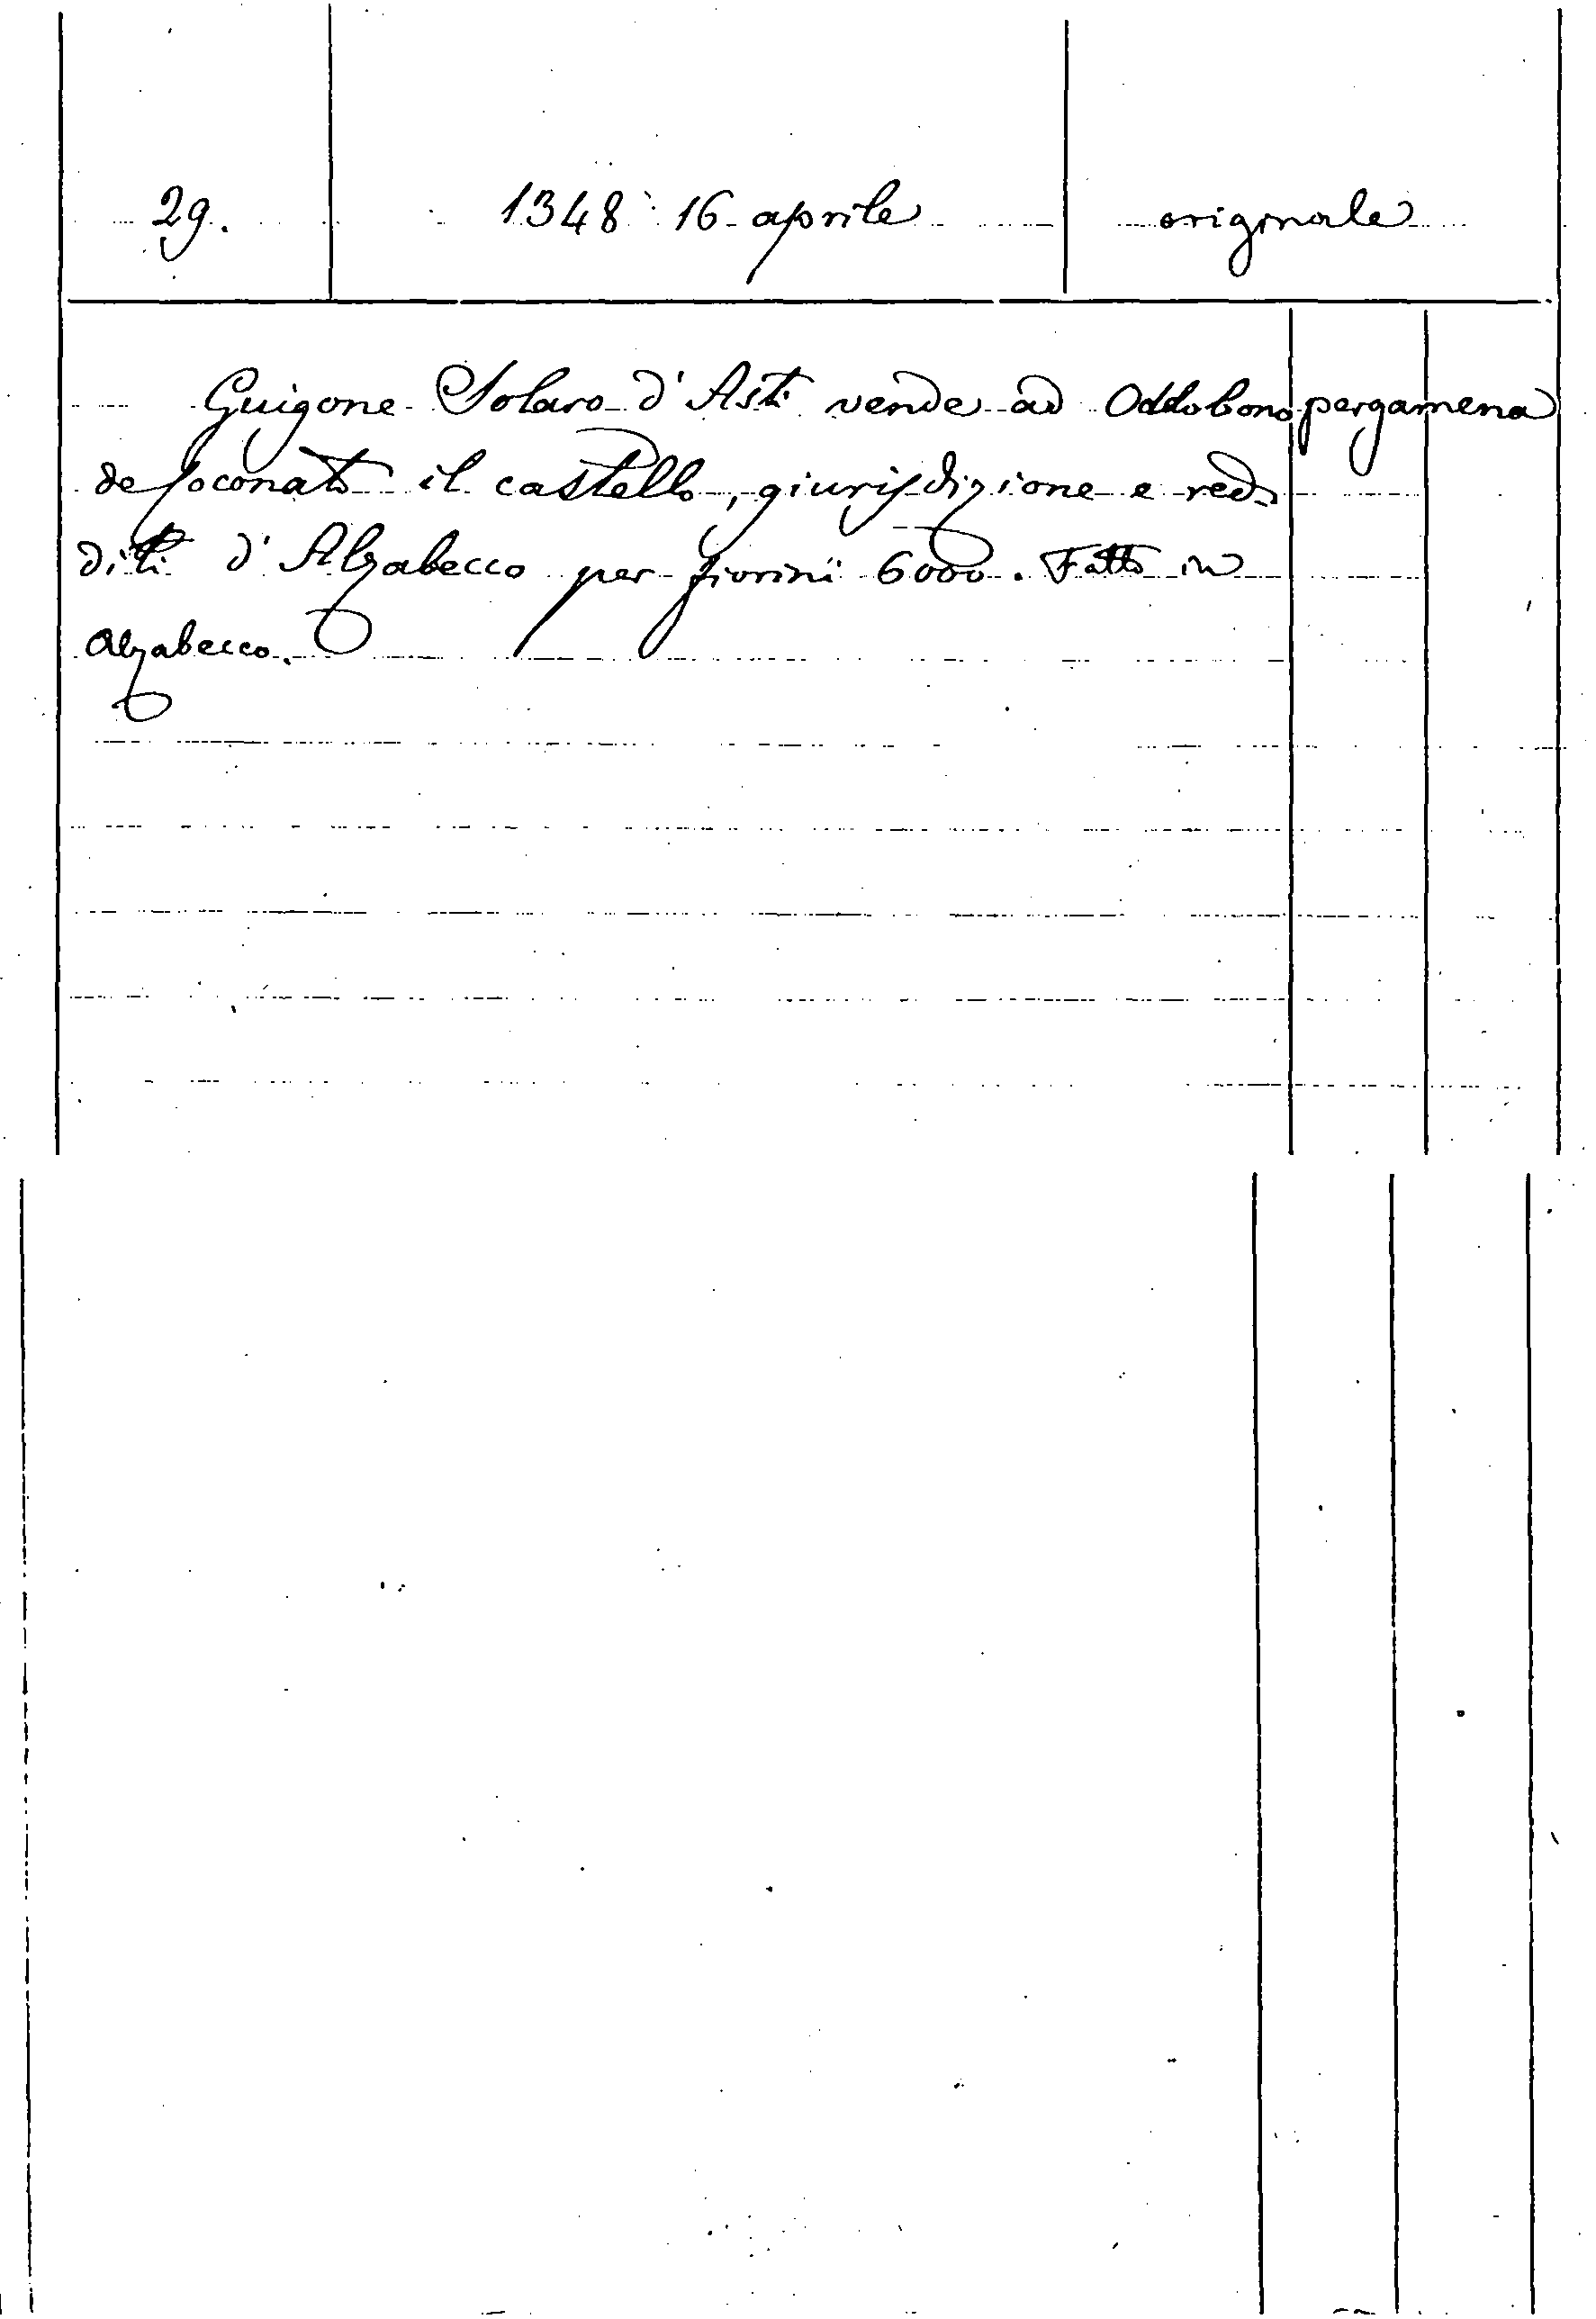 29. 1348 16 aprile originale
Guigone Solaro d'Asti vende ad Oddobono pergamena
de soconato il castello, giurisdizione e red
diti d'Alzabecco per fiorini 6000. Fatto in
Alzabecco.